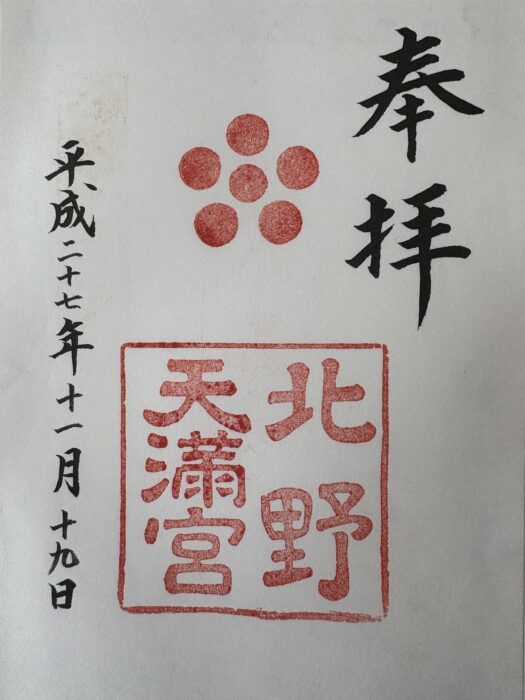 奉拝
北野
天満宮
平成二十七年十一月十九日